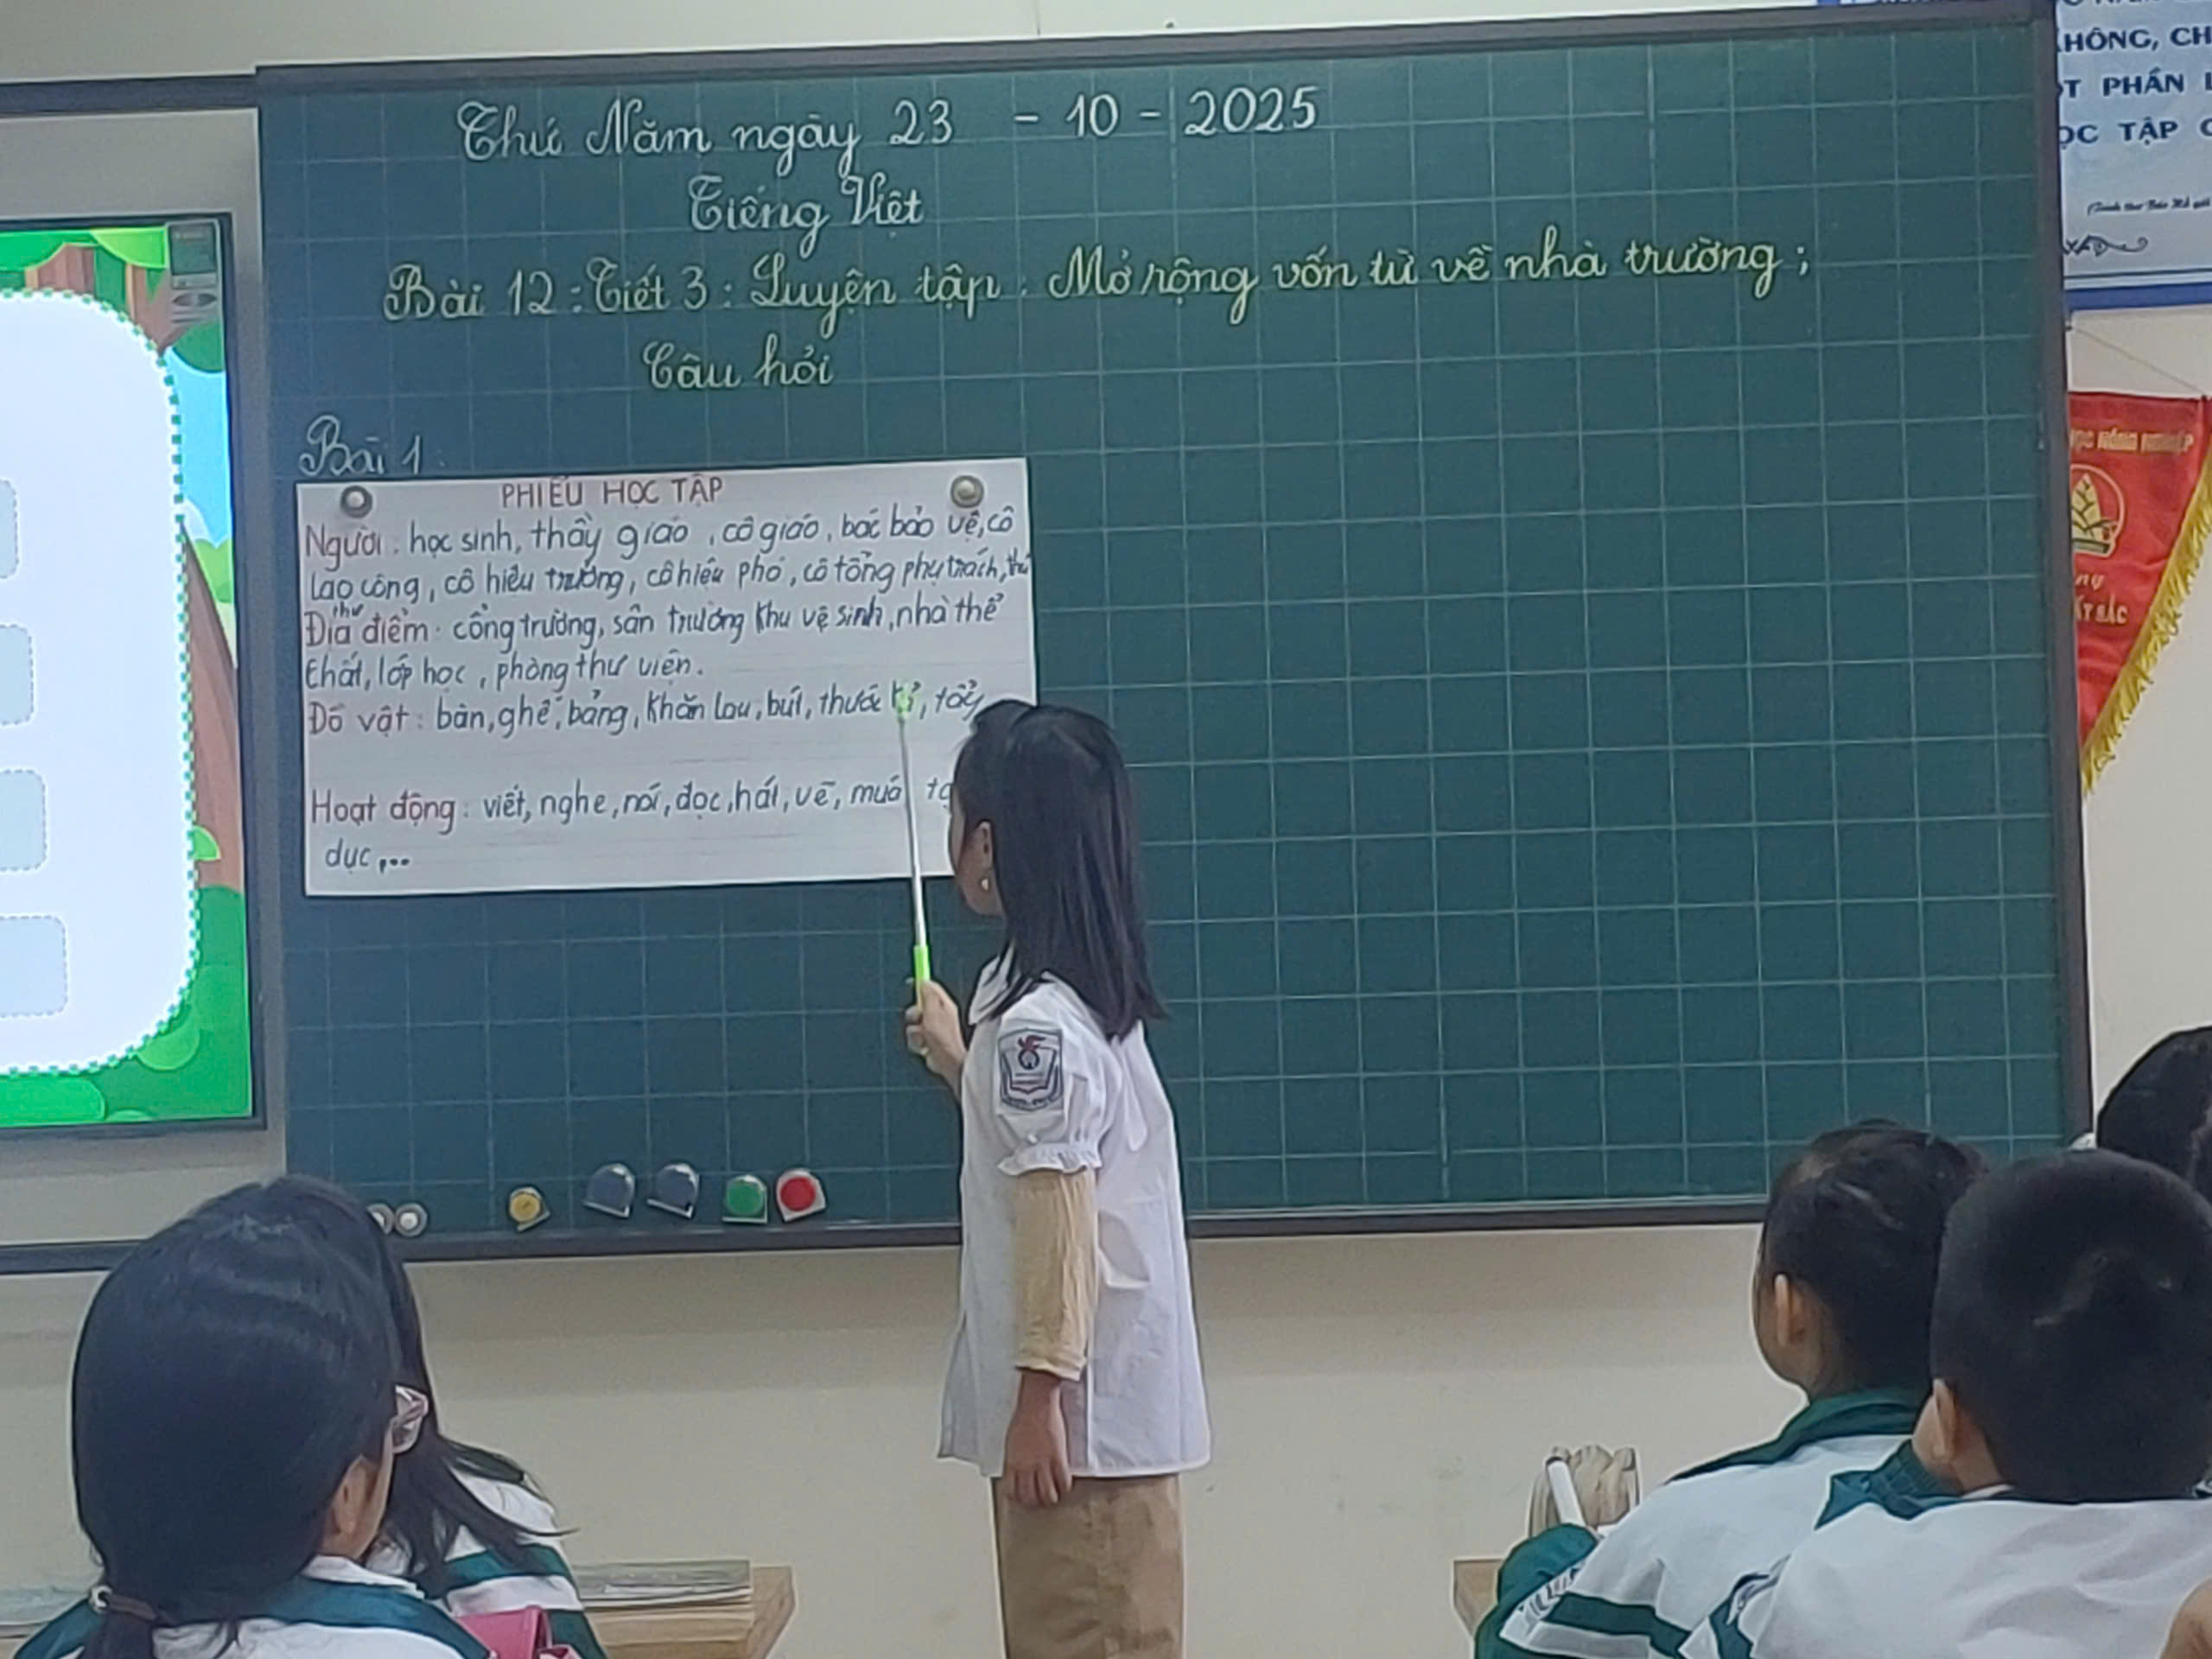 Thứ Năm ngày 23 - 10 - 2025
Tiếng Việt
Bài 12 : Tiết 3 : Luyện tập : Mở rộng vốn từ về nhà trường ;
Câu hỏi
Bài 1
PHIẾU HỌC TẬP
Người : học sinh, thầy giáo , cô giáo, bác bảo vệ, cô
lao công, cô hiệu trưởng, cô hiệu phó, cô tổng phụ trách, thủ
thư
Địa điểm : cổng trường, sân trường khu vệ sinh, nhà thể
chất, lớp học , phòng thư viện.
Đồ vật : bàn, ghế, bảng, khăn lau, bút, thước kẻ, tẩy
Hoạt động : viết, nghe, nói, đọc, hát, vẽ, múa,
dục ,...
HÔNG, CH
T PHẦN L
ỌC TẬP C